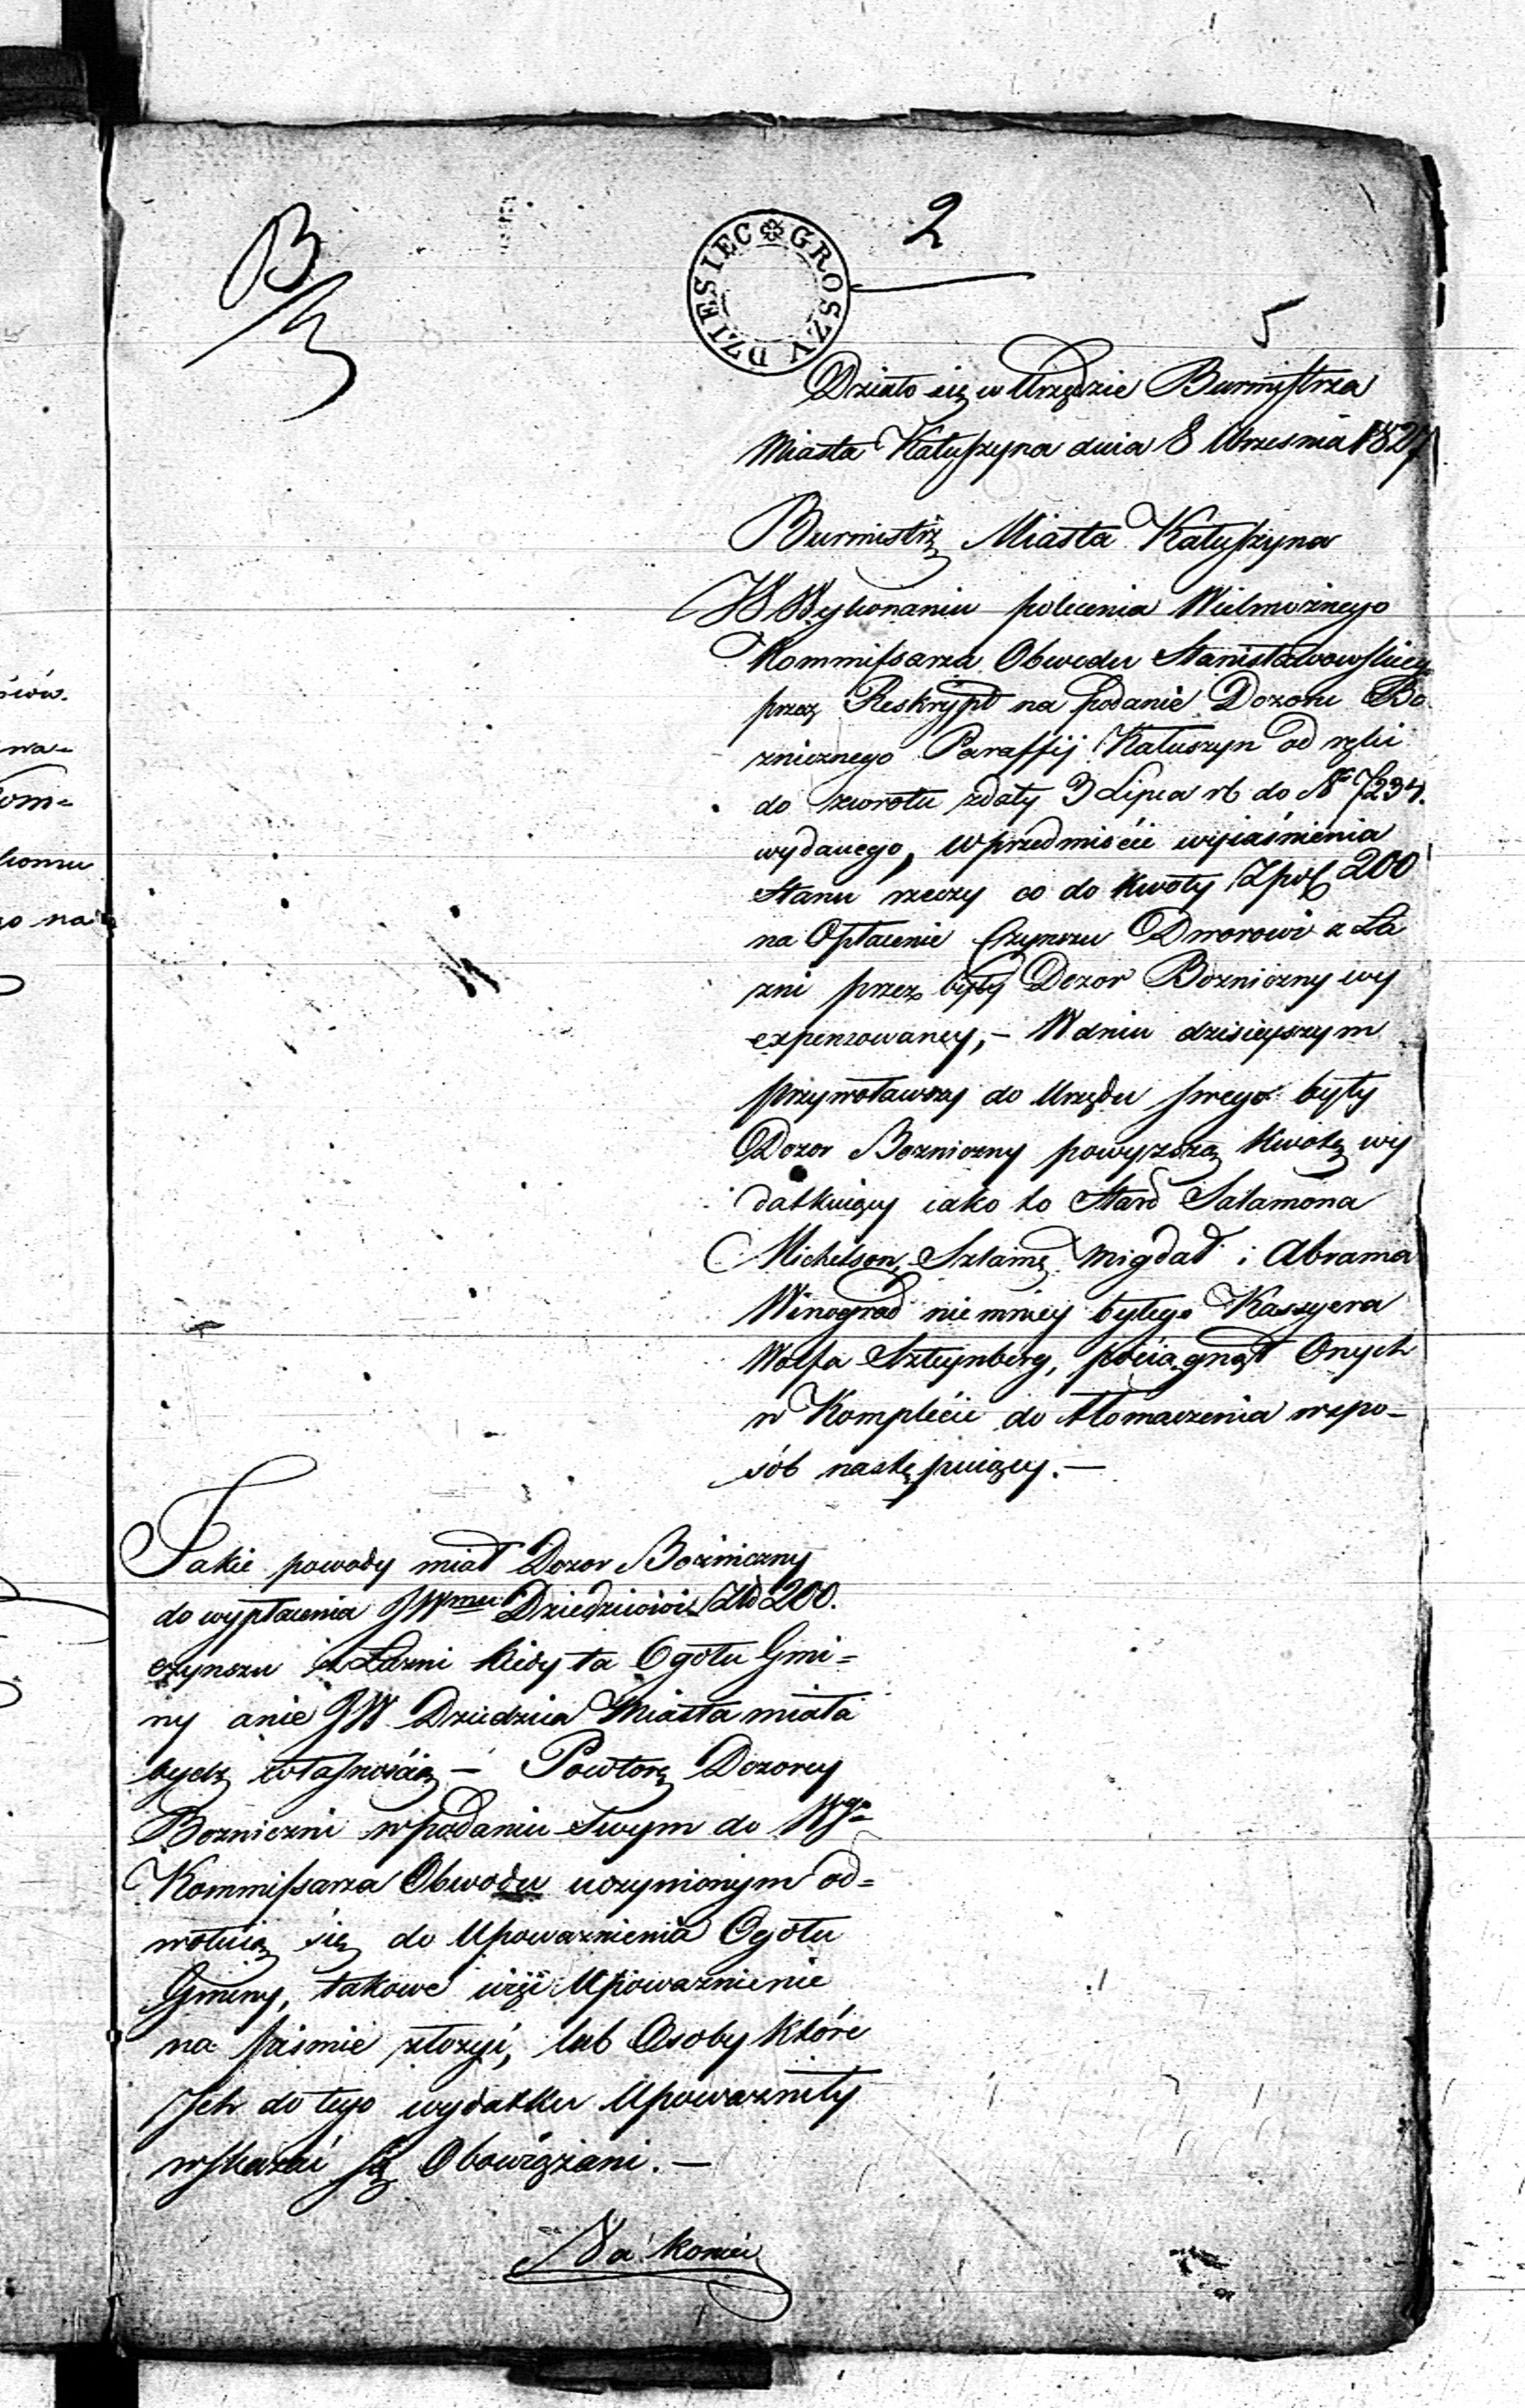 B
2
DZIESIEC GROSZY
5
Działo się w Urzędzie Burmistrza
Miasta Kałuszyna dnia 8 Wrzesnia 1827
Burmistrz Miasta Kałuszyna
W Wykonaniu polecenia Wielmożnego
Kommissarza Obwodu Stanisławowskiego
przez Reskrypt na podanie Dozoru Bo
znicznego Paraffij Kałuszyn od ręki
do zwrotu zdaty 3 Lipca rb do No 7234.
wydanego, w przedmiście wyiaśnienia
Stanu rzeczy co do kwoty Zpol 200
na Opłacenie Czynszu Dworowi z Ła
zni przez były Dozor Bozniczny wy
expensowaney, – W dniu dzisieyszym
przywoławszy do Urzędu swego były
Dozor Bozniczny powyzszą kwotę wy
datkuiący iako to Staro Salamona
Michelson, Szlamę Migdał i Abrama
Winograd niemniey byłego Kassyera
Wolfa Szteynberg, pociągnął Onych
w Komplecie do tłomaczenia wspo-
sób następuiący. –
Jakie powody miał Dozor Bózniczny
do wypłacenia JWmu Dziedzicowi Złp 200.
czynszu z Łazni kiedy ta Ogółu Gmi=
ny a nie JW Dziedzica Miasta miała
bydz własnością – Powtorę Dozorcy
Bozniczni w podaniu swym do Wgo
Kommissarza Obwodu uczynionym od=
wołuią się do Upoważnienia Ogółu
Gminy, takowe więc Upoważnienie
na piśmie złozyć, lub Osoby które
Ich do tego wydatku Upoważniły
wskazać są Obowiązani. –
Na koniec